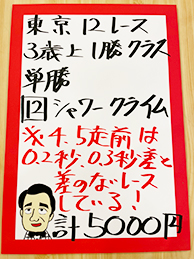 東京12レース
3歳上1勝クラス
単勝
12シャワークライム
※4、5走前は
0.2秒、0.3秒差と
差のないレース
している！
計5000円